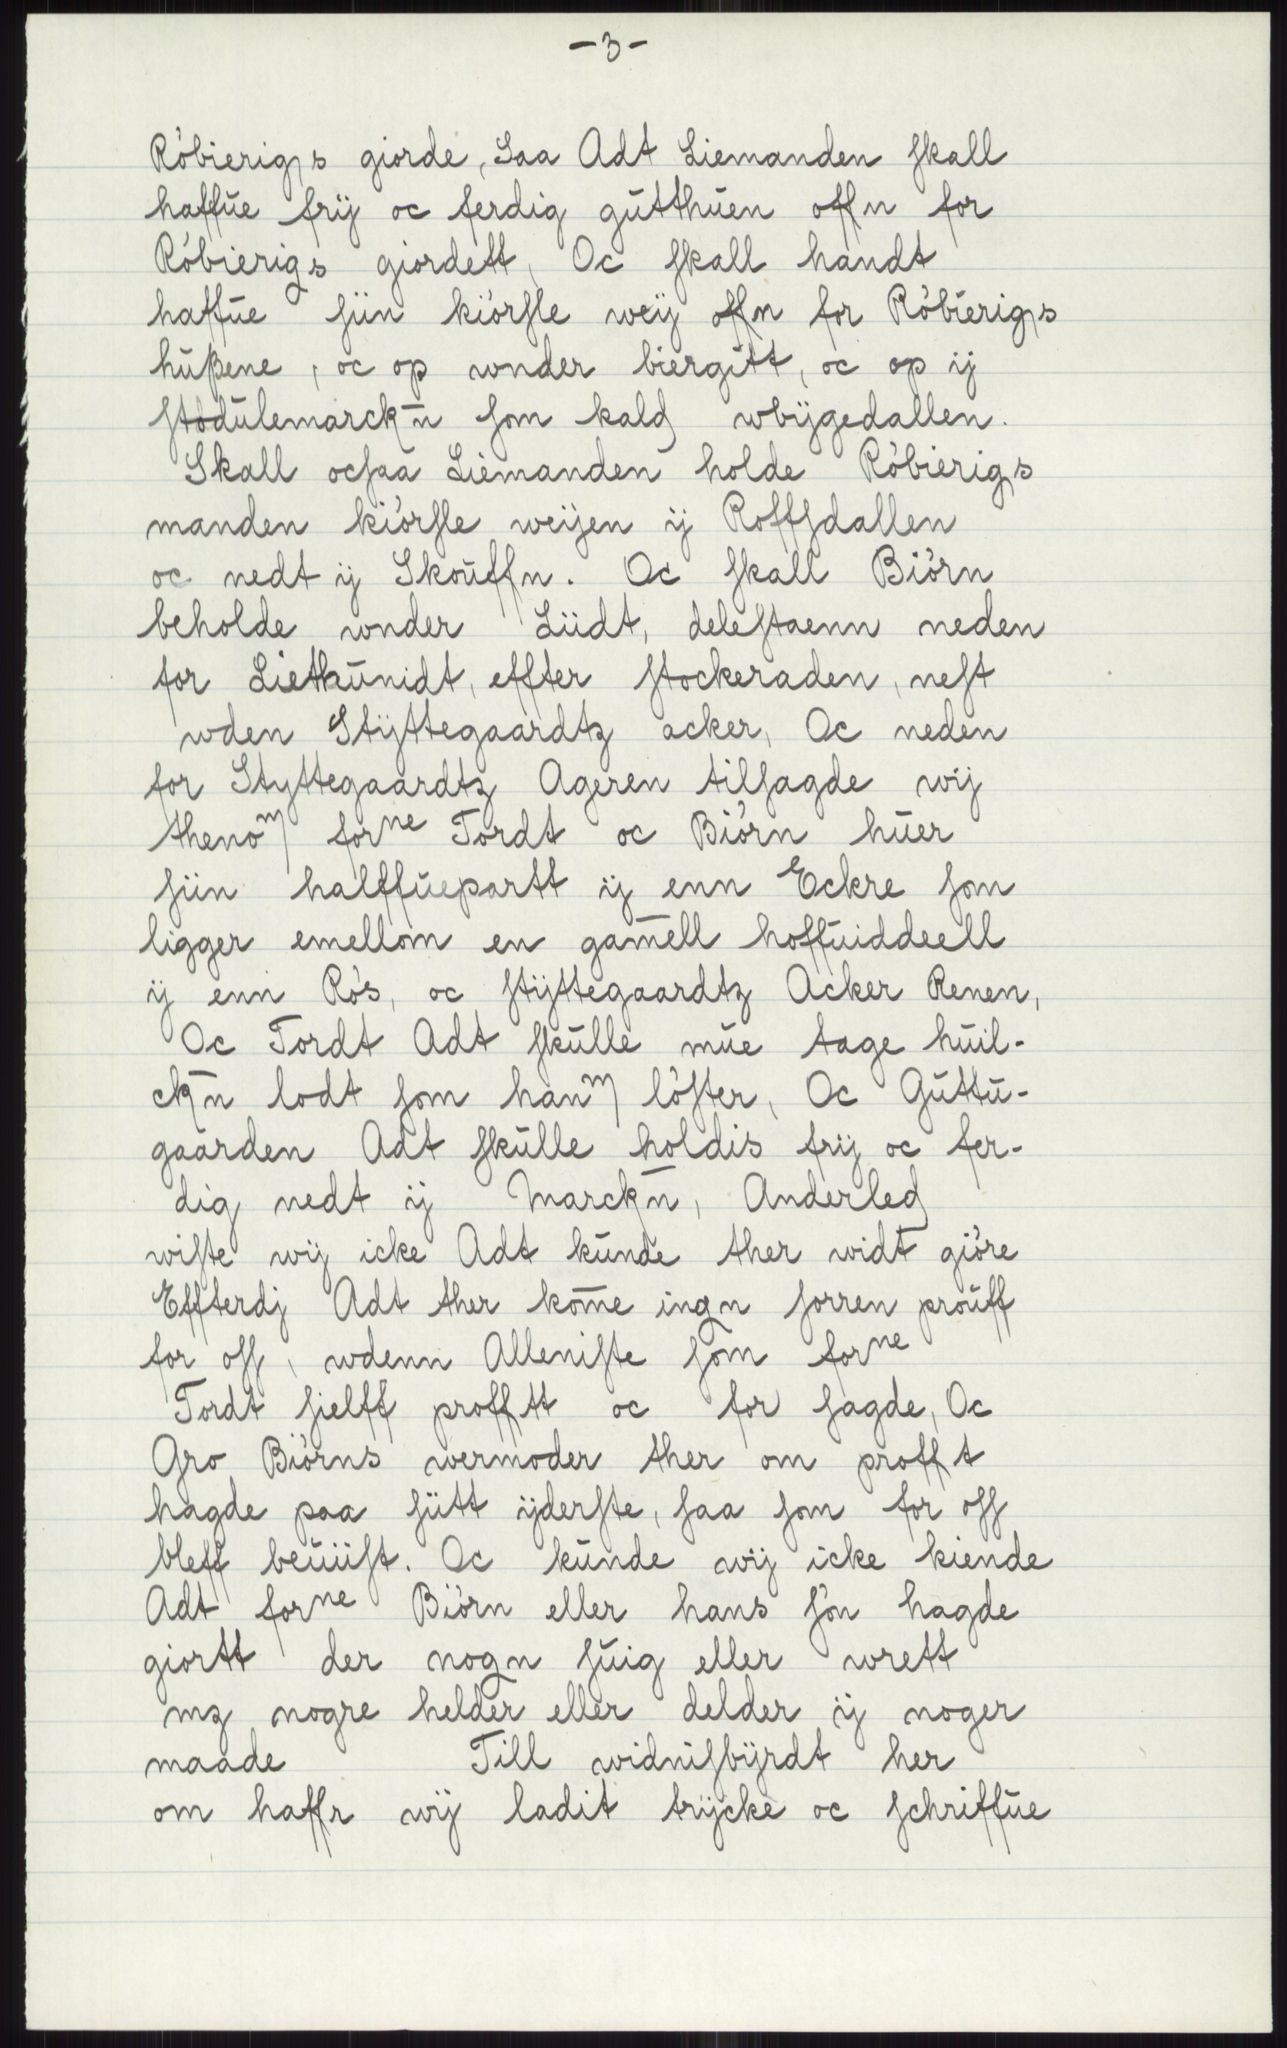 -3-
Röbierigs giorde, Saa Adt Liemanden skall
haffūe frÿ oc ferdig gūtthūen offn for
Röbierigs giordett, Oc skall handt
haffūe siin kiörsle weÿ offn for Röbierigs
hūβene, oc op wnder biergitt, oc op ÿ
stodūlemarckn̄ som kald wbÿgedallen.
Skall ocsaa Liemanden holde Röbierigs
manden kiörsle weÿen ÿ Roffsdallen
oc nedt ÿ Skoūffn. Oc skall Biörn
beholde wnder Liidt, delestaenn neden
for Liethūnidt, effter stockeraden, nest
wden Stÿttegaardtz acker, Oc neden
for Styttegaardtz Ageren tilsagde wÿ
thenom forne Tordt oc Biörn hūer
siin halffūepartt ÿ enn Eckre som
ligger emellom en gam̄ell hoffūiddeell
ÿ enn Rös, oc stÿttegaardtz Acker Renen,
Oc Tordt Adt skūlle mūe tage hūil-
ckn̄ lodt som hanm löster, Oc Gūttū-
gaarden Adt skūlle holdis frÿ oc fer-
dig nedt ÿ Marckn̄, Anderled
wiste wÿ icke Adt kūnde ther widt giöre
Effterdj Adt ther kom̄e ingn sorren proūff
for oss, wdenn Alleniste som forne
Tordt sielff profftt oc for sagde, Oc
Gro Biörns wermoder ther om profft
hagde paa siitt ÿderste, saa som for oss
bleff beūiist. Oc kūnde wÿ icke kiende
Adt forne Biörn eller hans sön hagde
giortt der nogn sūig eller wrett
mz nogre helder eller delder ÿ noger
maade Till widnisbÿrdt her
om haffr wÿ ladit trÿcke oc schriffūe